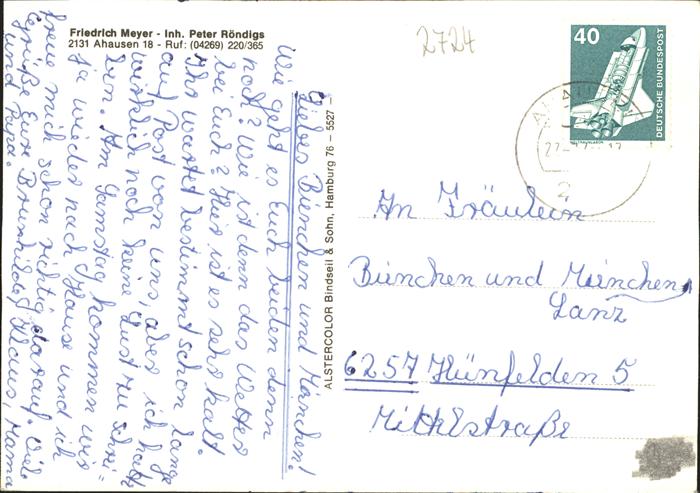 Friedrich Meyer - Inh. Peter Röndigs
2131 Ahausen 18 - Ruf: (04269) 220/365
Liebes Bünchen und München!
Wie geht es Euch beiden denn
noch? Wie ist denn das Wetter
bei Euch? Hier ist es sehr kalt.
Ihr wartet bestimmt schon lange
auf Post von uns, aber ich hatte
wirklich noch keine Lust zu schrei=
ben. Am Samstag kommen wir
ja wieder nach Hause und ich
freue mich schon richtig darauf. Viele
Grüße Eure Brunhilde, Klaus, Mama
und Papa.
ALSTERCOLOR Bindseil & Sohn, Hamburg 76 – 5527 –
2724
40
DEUTSCHE BUNDESPOST
An Fräulein
Bünchen und München
Lanz
6257 Hünfelden 5
Mittelstraße